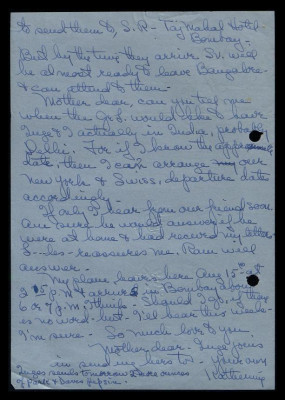 to send them to, S.R - Taj Mahal Hotel -
Bombay -
But by the time they arrive Sv. will
be almost ready to leave Bangalore -
& can attend to them -
Mother dear, can you tell me
when the Gov. would like to have
Inge & I actually in India, probably
Delhi. For if I know the approximate
date, then I can arrange our
New York & Swiss, departure date
accordingly -
If only I hear from our friend soon
Am sure he would answer if he
were at home & had received my letters
S---les - reassures me, Ram will
answer -
My plane leaves here Aug 15th at
2 15 p.m & arrives in Bombay about
6 or 7 p.m. Should I go, if they
is no word - but - I'll hear this week -
I'm sure - So much love to you
Mother dear - Inge joins
in sending hers to - Your own
Katherine
Inge sends tomorrow 2 more ounces